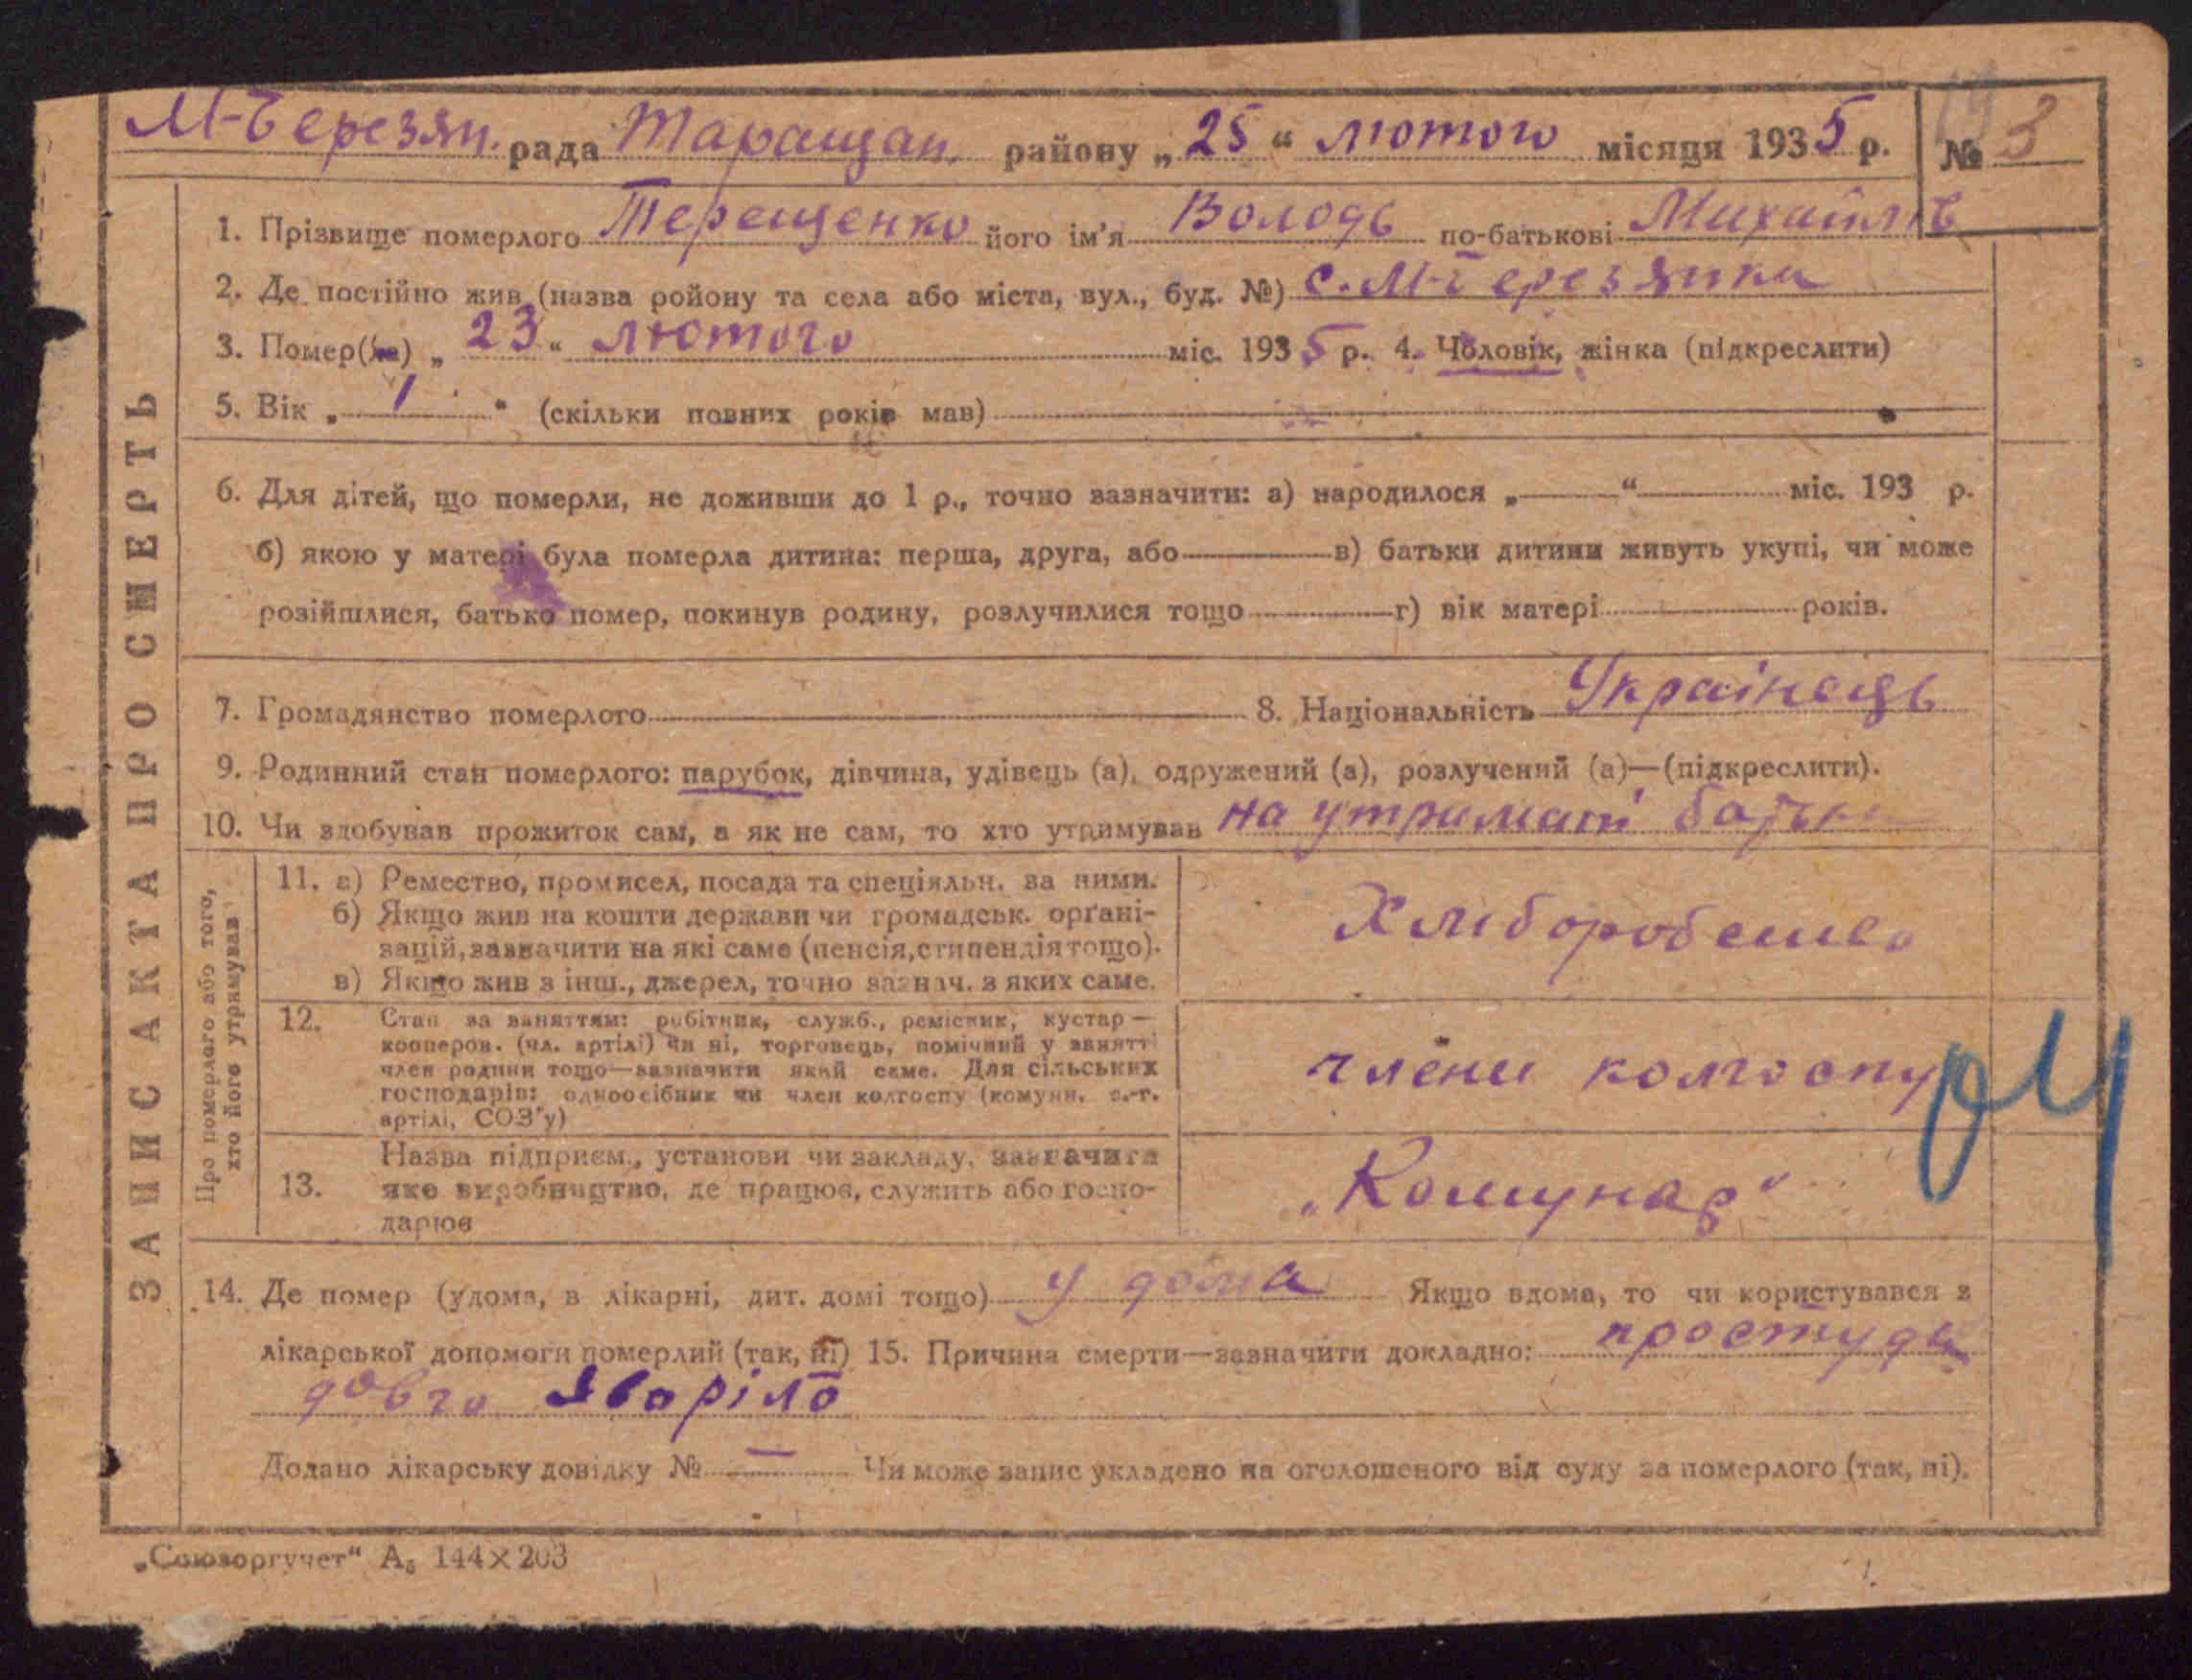 М-Березян. рада Таращан. району „25“ лютого місяця 1935 р. № 3
ЗАПИС АКТА ПРО СМЕРТЬ
1. Прізвище померлого Терещенко його ім'я Володь по-батькові Михайлів
2. Де постійно жив (назва ройону та села або міста, вул., буд. №) с. М-Березянка
3. Помер(ла) „23“ лютого міс. 1935 р. 4. Чоловік, жінка (підкреслити)
5. Вік „1“ (скільки повних років мав)
6. Для дітей, що померли, не доживши до 1 р., точно зазначити: а) народилося „—“ міс. 193 р.
б) якою у матері була померла дитина: перша, друга, або в) батьки дитини живуть укупі, чи може
розійшлися, батько помер, покинув родину, розлучилися тощо г) вік матері років.
7. Громадянство померлого 8. Національність Українець
9. Родинний стан померлого: парубок, дівчина, удівець (а), одружений (а), розлучений (а)—(підкреслити).
10. Чи здобував прожиток сам, а як не сам, то хто утримував на утримані батька
Про померлого або того,
хто його утримував
11. а) Ремество, промисел, посада та спеціяльн. за ними.
б) Якщо жив на кошти держави чи громадськ. орґані-
зацій, зазначити на які саме (пенсія, стипендія тощо).
в) Якщо жив з інш., джерел, точно зазнач. з яких саме.
12. Стан за заняттям: робітник, служб., ремісник, кустар—
кооперов. (чл. артілі) чи ні, торговець, помічний у занятті
член родини тощо—зазначити який саме. Для сільських
господарів: одноосібник чи член колгоспу (комуни, с.-г.
артілі, СОЗ'у)
члени колгоспу
13. Назва підприєм., установи чи закладу, зазначити
яке виробництво, де працює, служить або госпо-
дарює
„Комунар“
14. Де помер (удома, в лікарні, дит. домі тощо) у дома Якщо вдома, то чи користувався з
лікарської допомоги померлий (так, ні) 15. Причина смерти—зазначити докладно: простуда
довго хворіло
Додано лікарську довідку № — Чи може запис укладено на оголошеного від суду за померлого (так, ні).
„Союзоргучет“ А₅ 144×203